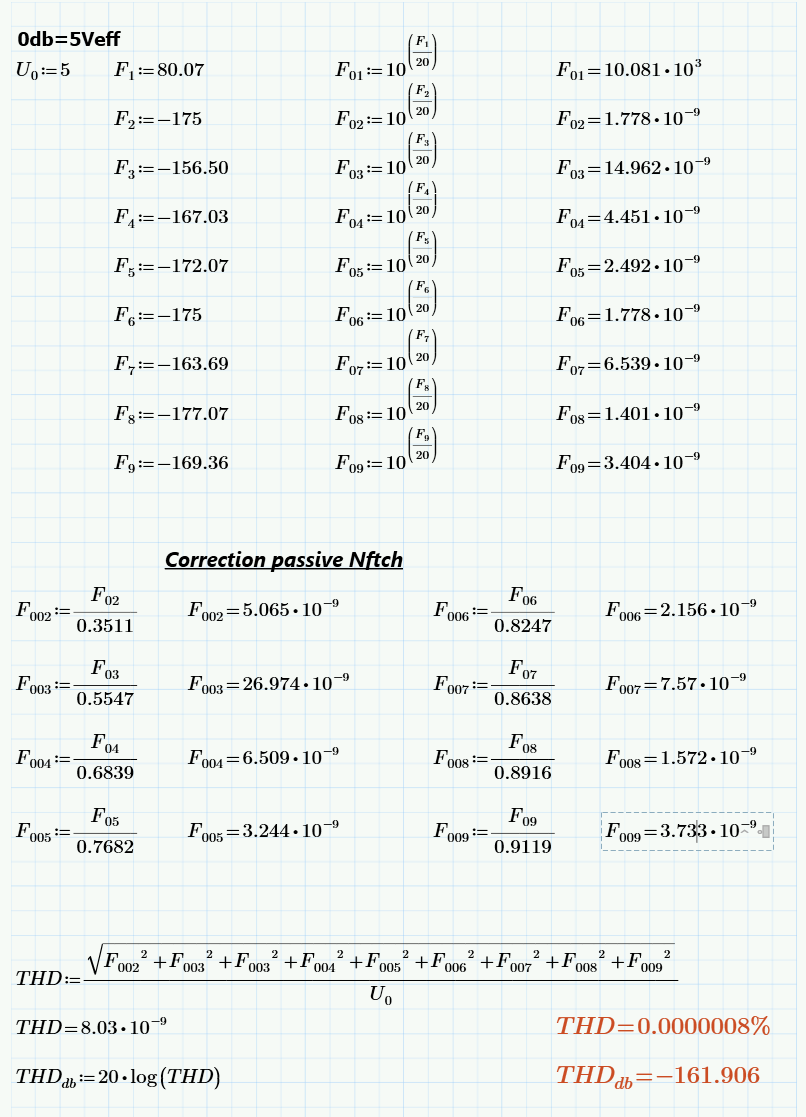 0db=5Veff
U₀:=5 F₁:=80.07 F₀₁:=10^(F₁/20) F₀₁=10.081•10³
F₂:=−175 F₀₂:=10^(F₂/20) F₀₂=1.778•10⁻⁹
F₃:=−156.50 F₀₃:=10^(F₃/20) F₀₃=14.962•10⁻⁹
F₄:=−167.03 F₀₄:=10^(F₄/20) F₀₄=4.451•10⁻⁹
F₅:=−172.07 F₀₅:=10^(F₅/20) F₀₅=2.492•10⁻⁹
F₆:=−175 F₀₆:=10^(F₆/20) F₀₆=1.778•10⁻⁹
F₇:=−163.69 F₀₇:=10^(F₇/20) F₀₇=6.539•10⁻⁹
F₈:=−177.07 F₀₈:=10^(F₈/20) F₀₈=1.401•10⁻⁹
F₉:=−169.36 F₀₉:=10^(F₉/20) F₀₉=3.404•10⁻⁹
Correction passive Nftch
F₀₀₂:=F₀₂/0.3511 F₀₀₂=5.065•10⁻⁹ F₀₀₆:=F₀₆/0.8247 F₀₀₆=2.156•10⁻⁹
F₀₀₃:=F₀₃/0.5547 F₀₀₃=26.974•10⁻⁹ F₀₀₇:=F₀₇/0.8638 F₀₀₇=7.57•10⁻⁹
F₀₀₄:=F₀₄/0.6839 F₀₀₄=6.509•10⁻⁹ F₀₀₈:=F₀₈/0.8916 F₀₀₈=1.572•10⁻⁹
F₀₀₅:=F₀₅/0.7682 F₀₀₅=3.244•10⁻⁹ F₀₀₉:=F₀₉/0.9119 F₀₀₉=3.733•10⁻⁹
THD:=√(F₀₀₂²+F₀₀₃²+F₀₀₃²+F₀₀₄²+F₀₀₅²+F₀₀₆²+F₀₀₇²+F₀₀₈²+F₀₀₉²)/U₀
THD=8.03•10⁻⁹ THD=0.0000008%
THD_db:=20•log(THD) THD_db=−161.906